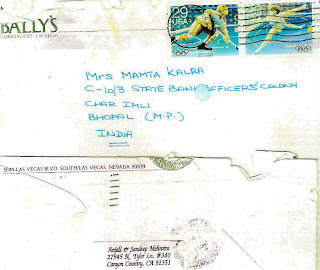 BALLY'S
CASINO RESORT · LAS VEGAS
29
USA
Mrs MAMTA KALRA
C-10/3 STATE BANK OFFICERS' COLONY
CHAR IMLI
BHOPAL (M.P.)
INDIA
3645 LAS VEGAS BLVD. SOUTH/LAS VEGAS, NEVADA 89109
& Sandeep Mehrotra
27945 N. Tyler Ln. #340
Canyon Country, CA 91351